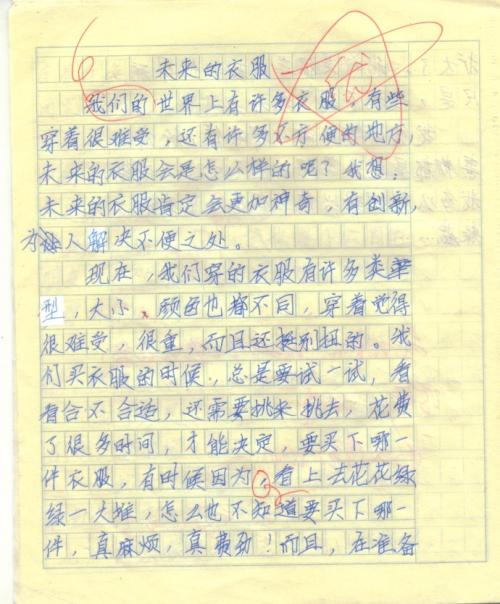 未来的衣服
我们的世界上有许多衣服,有些
穿着很难受,还有许多不方便的地方,
未来的衣服会是怎么样的呢?我想:
未来的衣服肯定会更加神奇,有创新,
为人解决不便之处。
现在,我们穿的衣服有许多类
型,大小、颜色也都不同,穿着觉得
很难受,很重,而且还挺别扭的。我
们买衣服的时候,总是要试一试,看
看合不合适,还需要挑来挑去,花费
了很多时间,才能决定,要买下哪一
件衣服,有时候因为,看上去花花绿
绿一大堆,怎么也不知道要买下哪一
件,真麻烦,真费劲!而且,在准备